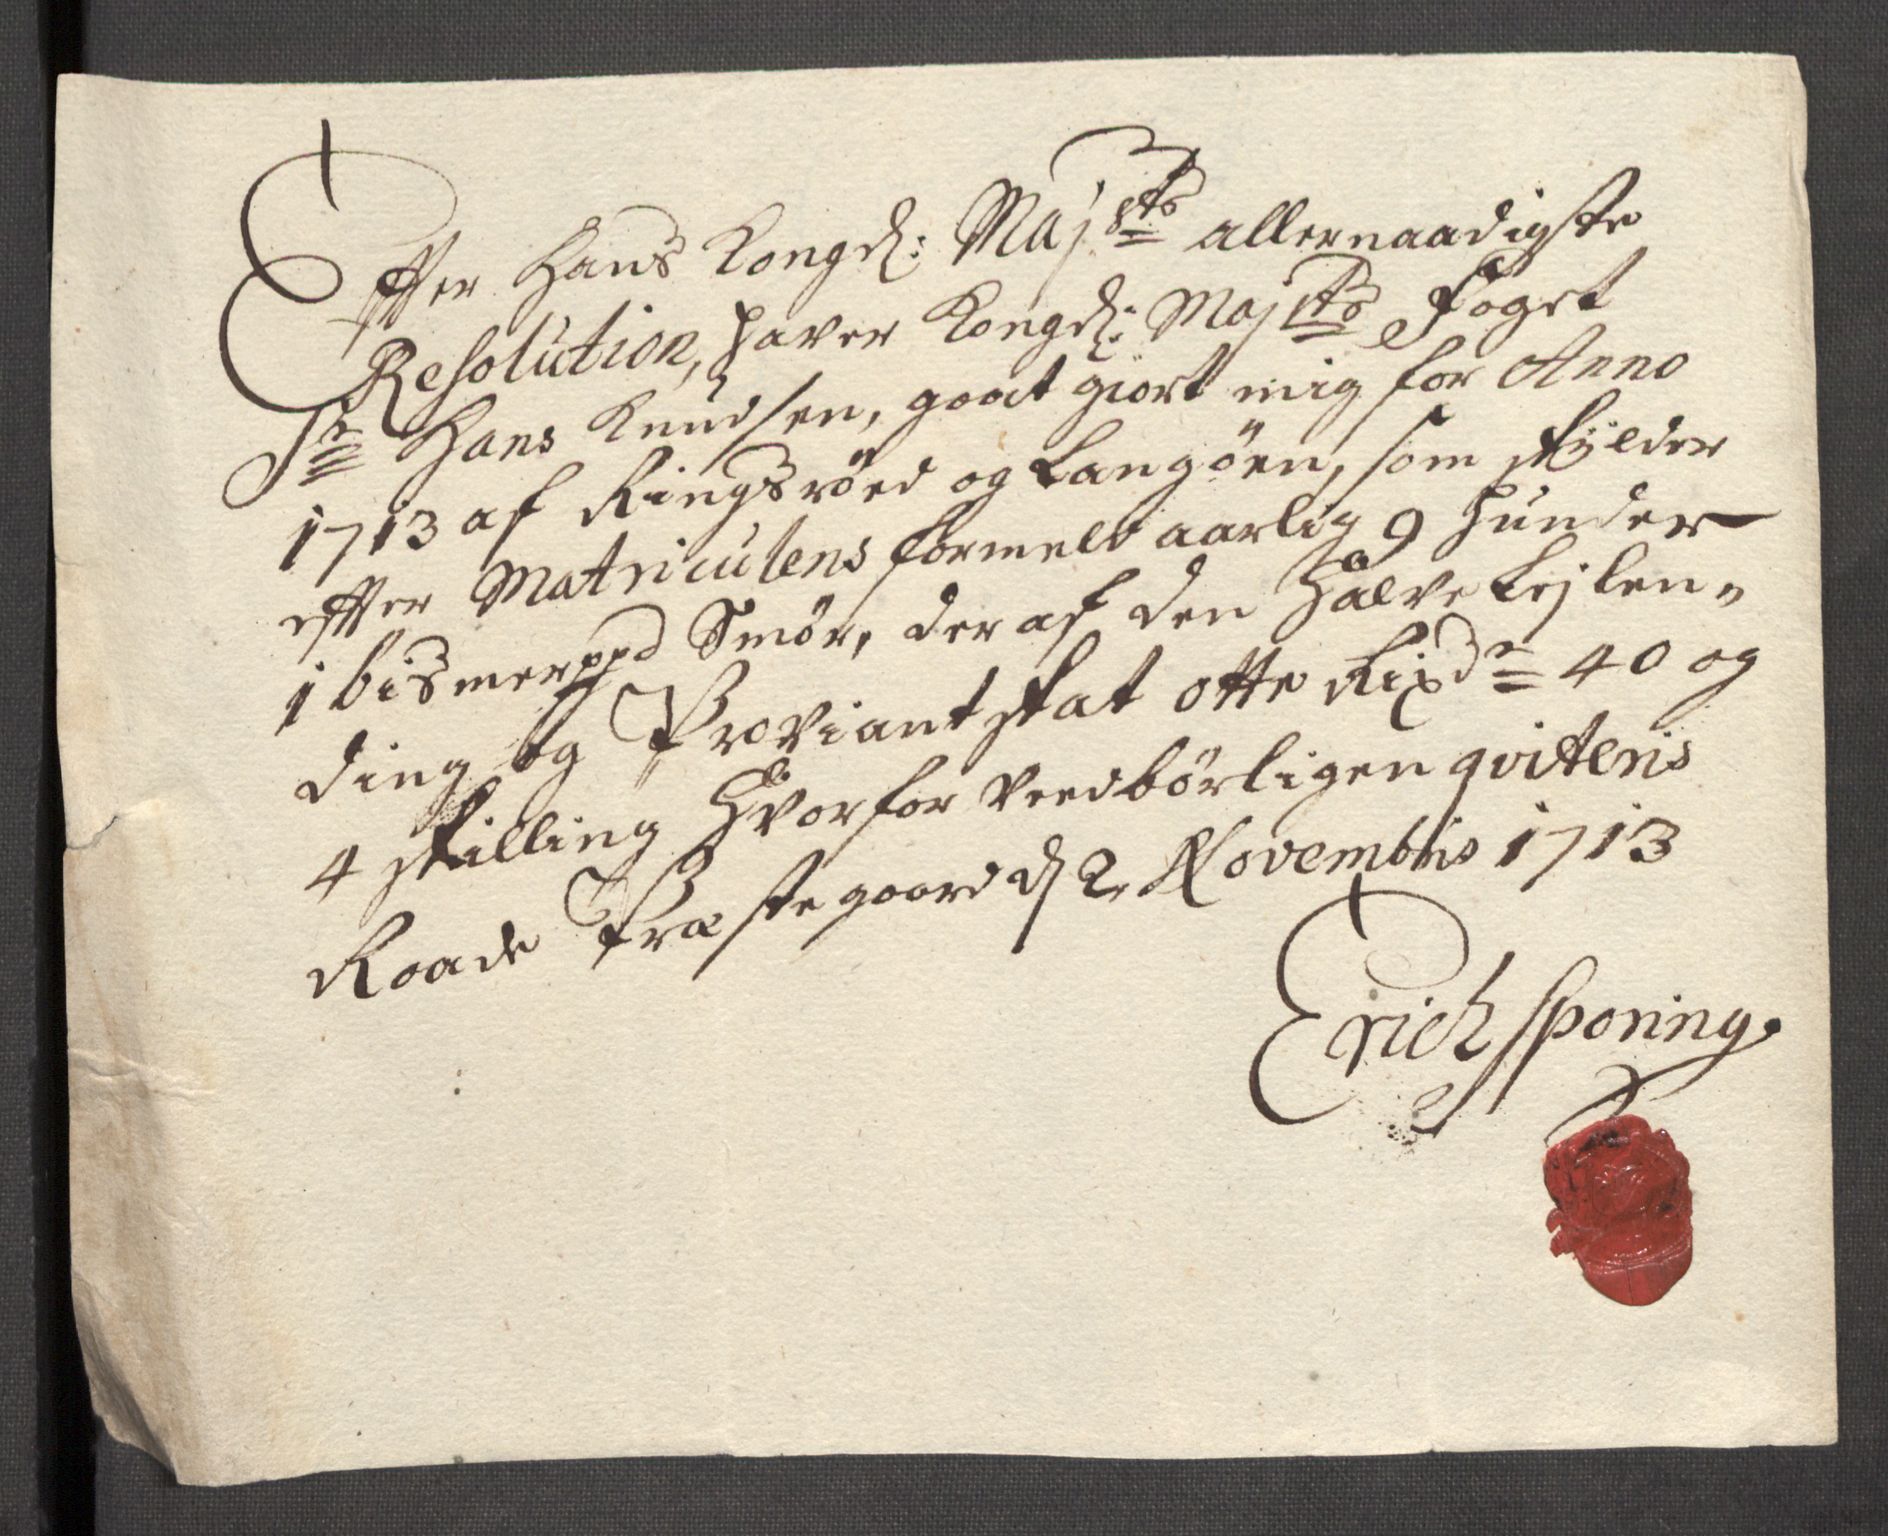 Effter Hans Kongel: Maj:sts allernaadigste
Resolution, haver Kongel: Maj:sts Foget
Sr Hans Knudsen, goat giort mig for Anno
1713 af Ringsröed og Langöen, som skÿlder
effter Matriculens formeld aarlig 9 hunder
1 bismerppd Smör, deraf den Halve Lejlen-
ding og Proviant skat otte Rixdr 40 og
4 skilling Hvorfor veedbörligen qviteris
Raade Præstegaard d 2 Novembris 1713
Erich Sporing.